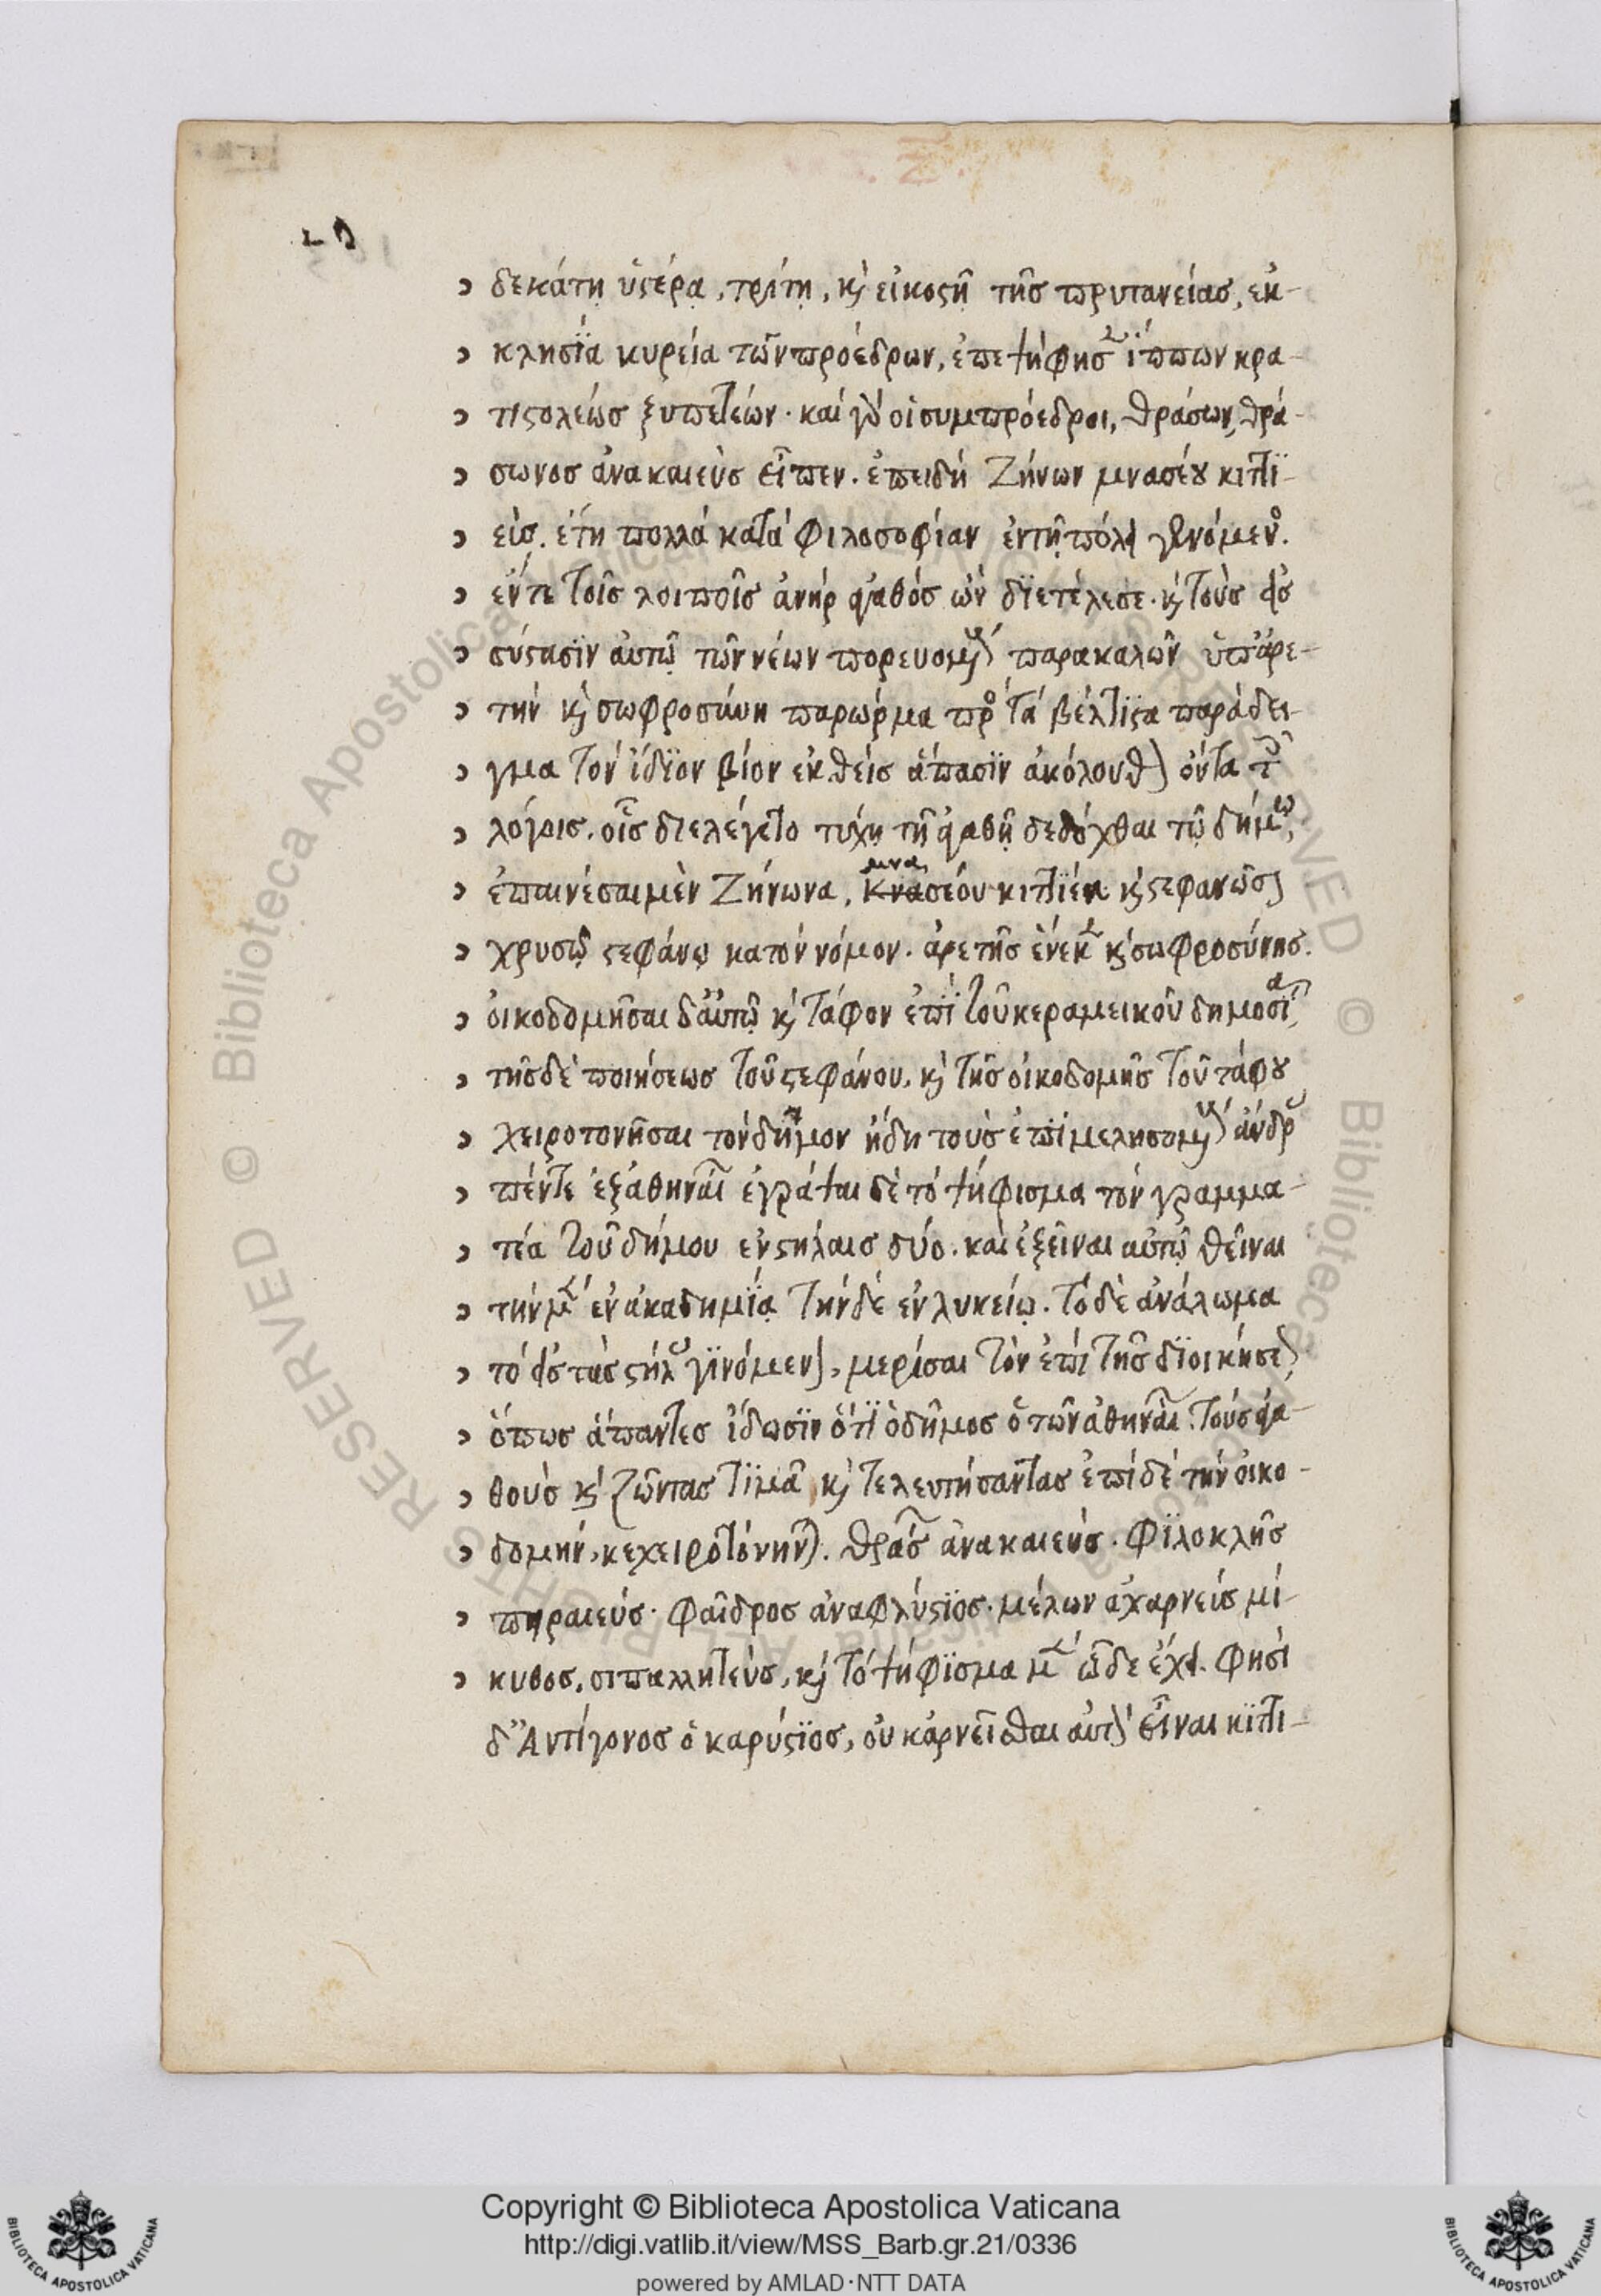 δεκάτῃ ὑστέρᾳ, τρίτῃ, κὶ εἰκοστῆ τῆς πρυτανείας, ἐκ-
κλησΐα κυρεία τῶν προέδρων, ἐπεψήφησ ἵππων κρα-
τιστολέως ξυπετεών. καί οἱ συμπρόεδροι, θράσων, θρά-
σωνος ἀνακαιεὺς εἶπεν. ἐπειδή Ζήνων μνασέου κιττϊ-
εὶς. ἔτη πολλά κατά φιλοσοφίαν ἐν τῇ πόλει γενόμενος.
ἔν τε τοῖς λοιποῖς ἀνήρ ἀγαθός ὢν δϊετέλεσε. κὶ τοὺς εἰς
σύστασϊν αὐτῷ τῶν νέων πορευομένους παρακαλῶν ὑπ' ἀρε-
τήν κὶ σωφροσύνη παρώρμα πρὸς τά βέλτϊστα παράδει-
γμα τόν ἴδϊον βίον ἐκθείς ἅπασϊν ἀκόλουθον ὄντα τοῖς
λόγοις. οἷς διελέγετο τύχη τῇ ἀγαθῇ δεδόχθαι τῷ δήμω,
ἐπαινέσαι μὲν Ζήνωνα, μνασέου κιττϊέα κὶ στεφανῶσαι
χρυσῷ στεφάνῳ κατὸν νόμον. ἀρετῆς ἕνεκα κὶ σωφροσύνης.
οἰκοδομῆσαι δ' αὐτῷ κὶ τάφον ἐπϊ τοῦ κεραμεικοῦ δημοσίᾳ,
τῆς δὲ ποιήσεως τοῦ στεφάνου, κὶ τῆς οἰκοδομῆς τοῦ τάφου
χειροτονῆσαι τόν δῆμον ἤδη τοὺς ἐπϊμελησομένους ἄνδρας
πέντε ἐξ ἀθηναίων ἐγράψαι δὲ τό ψήφισμα τόν γραμμα-
τέα τοῦ δήμου ἐν στήλαις δύο. καὶ ἐξεῖναι αὐτῷ θεῖναι
τήν μὲν ἐν ἀκαδημΐᾳ τήν δέ ἐν λυκείῳ. τό δὲ ἀνάλωμα
τό εἰς τὰς στήλας γϊνόμενον, μερίσαι τὸν ἐπί τῆς δϊοικήσεως
ὅπως ἅπαντες ἴδωσϊν ὅτϊ ὁ δῆμος ὁ τῶν ἀθηναίων τούς ἀγα-
θοὺς κὶ ζῶντας τϊμᾶ κὶ τελευτήσαντας ἐπί δέ τήν οἰκο-
δομήν, κεχειροτόνηνται. θράσων ἀνακαιεύς. Φϊλοκλῆς
πηραιεύς. Φαῖδρος ἀναφλύστϊος. μέλων ἀχαρνεύς μί-
κυθος, σιπαλλητεὺς, κὶ τό ψήφϊσμα μὲν ὧδε ἔχει. Φησὶ
δ' Ἀντίγονος ὁ καρύστϊος, οὐκ ἀρνεῖσθαι αὐτὸν εἶναι κϊττι-
Copyright © Biblioteca Apostolica Vaticana
http://digi.vatlib.it/view/MSS_Barb.gr.21/0336
powered by AMLAD·NTT DATA